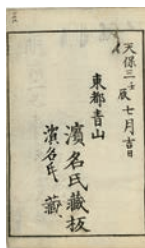 天保三壬辰七月吉日
東都青山
濱名氏藏板
濱名氏藏